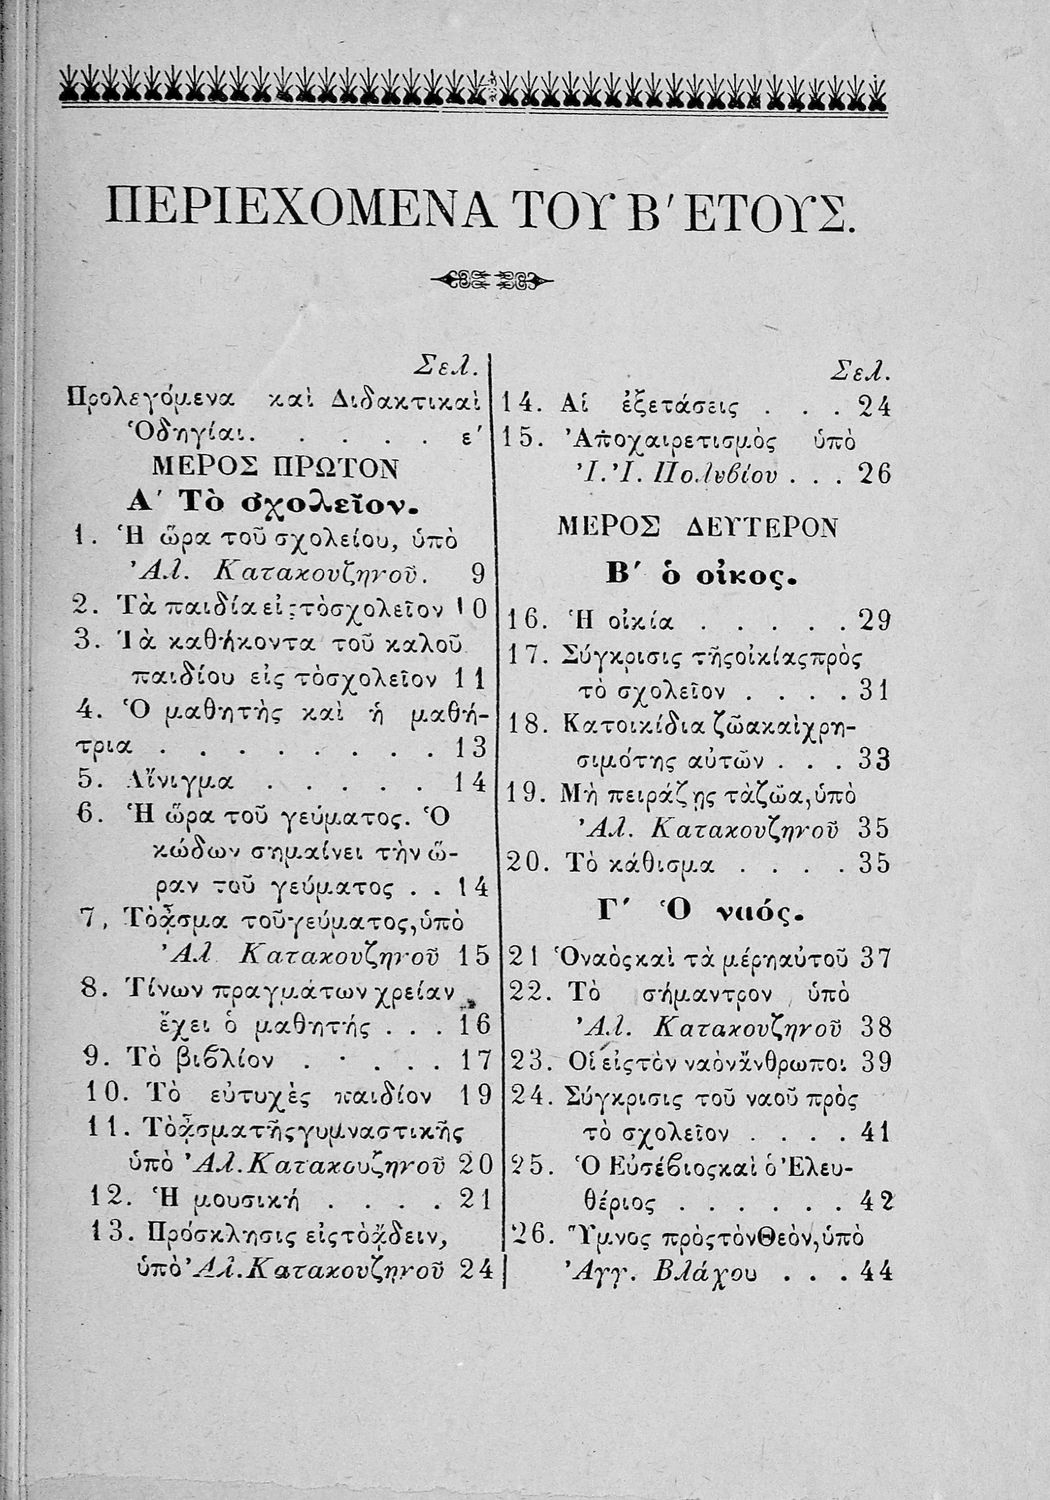 ΠΕΡΙΕΧΟΜΕΝΑ ΤΟΥ Β΄ ΕΤΟΥΣ.
Σελ.
Προλεγόμενα καὶ Διδακτικαὶ
Ὁδηγίαι. . . . . ε΄
ΜΕΡΟΣ ΠΡΩΤΟΝ
Α΄ Τὸ σχολεῖον.
1. Ἡ ὥρα τοῦ σχολείου, ὑπὸ
Ἀλ. Κατακουζηνοῦ. 9
2. Τὰ παιδία εἰς τὸ σχολεῖον 10
3. Τὰ καθήκοντα τοῦ καλοῦ
παιδίου εἰς τὸ σχολεῖον 11
4. Ὁ μαθητὴς καὶ ἡ μαθή-
τρια . . . . . . . . 13
5. Αἴνιγμα . . . . . 14
6. Ἡ ὥρα τοῦ γεύματος. Ὁ
κώδων σημαίνει τὴν ὥ-
ραν τοῦ γεύματος . . 14
7, Τὸ ᾆσμα τοῦ γεύματος, ὑπὸ
Ἀλ Κατακουζηνοῦ 15
8. Τίνων πραγμάτων χρείαν
ἔχει ὁ μαθητής . . . 16
9. Τὸ βιβλίον . . . . . 17
10. Τὸ εὐτυχὲς παιδίον 19
11. Τὸ ᾆσμα τῆς γυμναστικῆς
ὑπὸ Ἀλ. Κατακουζηνοῦ 20
12. Ἡ μουσική . . . . 21
13. Πρόσκλησις εἰς τὸ ᾄδειν,
ὑπὸ Ἀλ. Κατακουζηνοῦ 24
Σελ.
14. Αἱ ἐξετάσεις . . . 24
15. Ἀποχαιρετισμὸς ὑπὸ
Ἰ. Ἰ. Πολυβίου . . . 26
ΜΕΡΟΣ ΔΕΥΤΕΡΟΝ
Β΄ ὁ οἶκος.
16. Ἡ οἰκία . . . . . 29
17. Σύγκρισις τῆς οἰκίας πρὸς
τὸ σχολεῖον . . . . 31
18. Κατοικίδια ζῶα καὶ χρη-
σιμότης αὐτῶν . . . 33
19. Μὴ πειράζῃς τὰ ζῶα, ὑπὸ
Ἀλ. Κατακουζηνοῦ 35
20. Τὸ κάθισμα . . . . 35
Γ΄ Ὁ ναός.
21 Ὁ ναὸς καὶ τὰ μέρη αὐτοῦ 37
22. Τὸ σήμαντρον, ὑπὸ
Ἀλ. Κατακουζηνοῦ 38
23. Οἱ εἰς τὸν ναὸν ἄνθρωποι 39
24. Σύγκρισις τοῦ ναοῦ πρὸς
τὸ σχολεῖον . . . . 41
25. Ὁ Εὐσέβιος καὶ ὁ Ἐλευ-
θέριος . . . . . . 42
26. Ὕμνος πρὸς τὸν Θεὸν, ὑπὸ
Ἀγγ. Βλάχου . . . 44